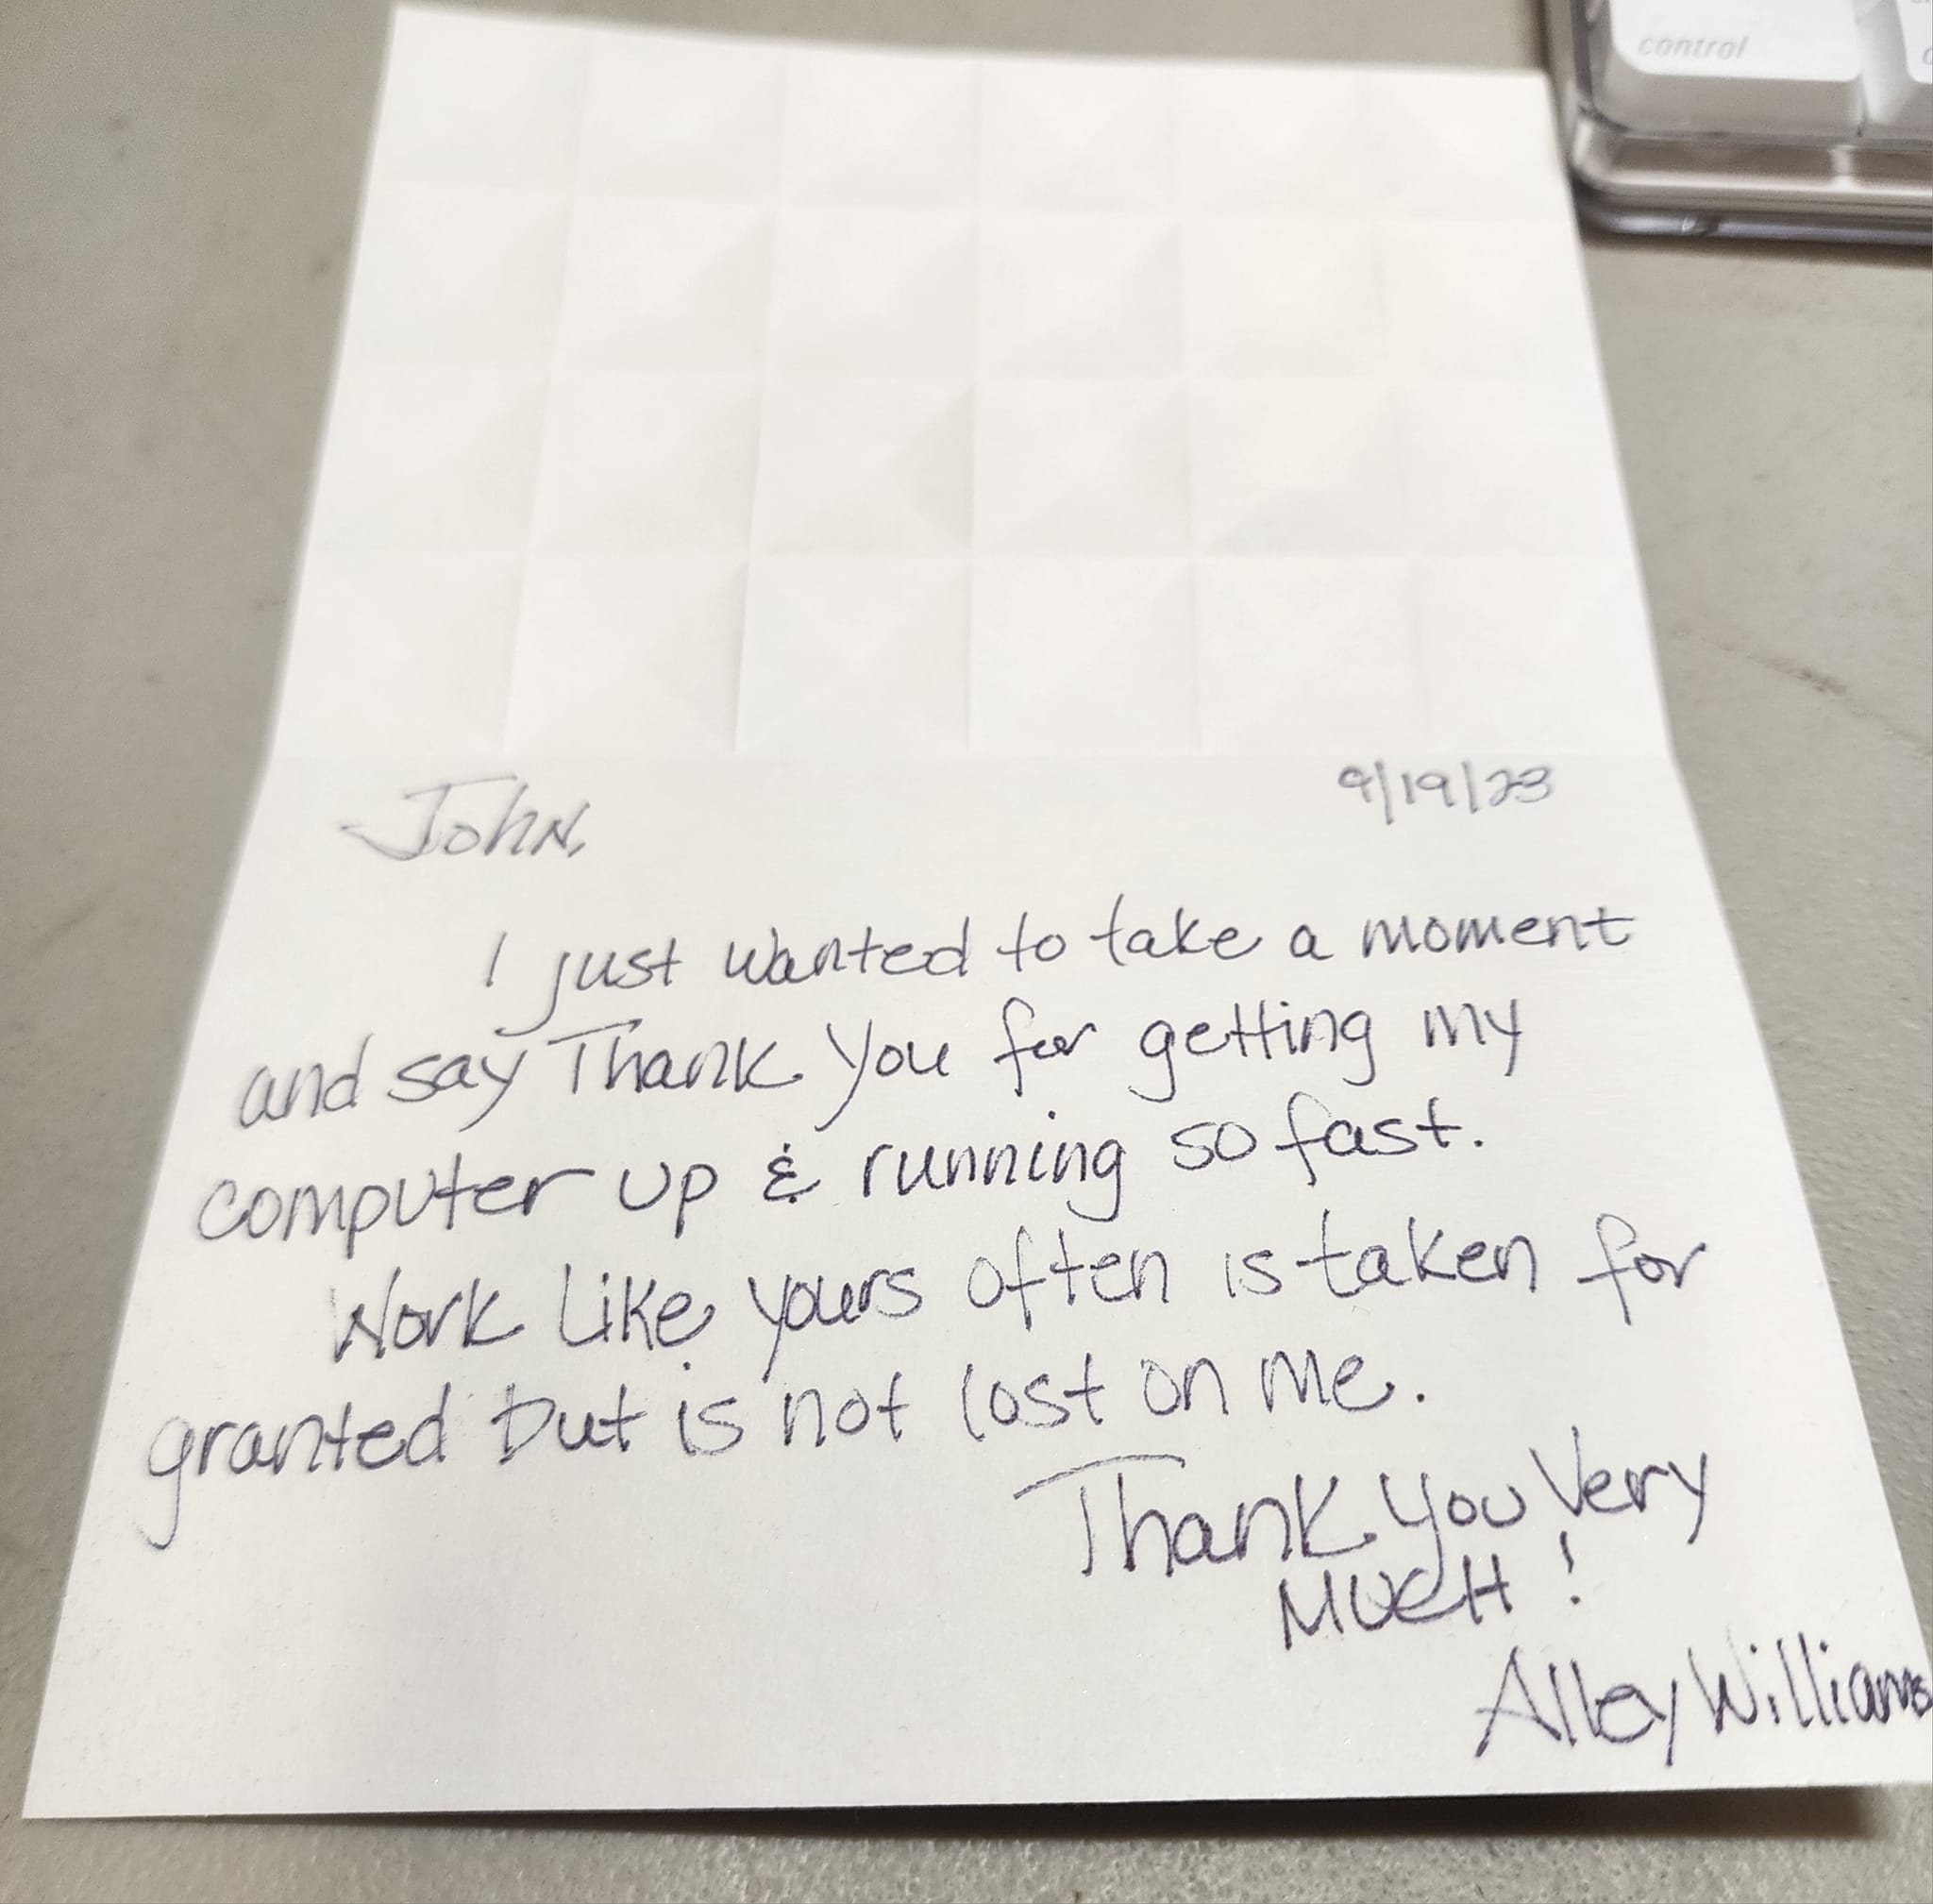 control
John, 9/19/23
I just wanted to take a moment
and say Thank you for getting my
computer up & running so fast.
Work like yours often is taken for
granted but is not lost on me.
Thank you Very
MUCH!
Alley Williams